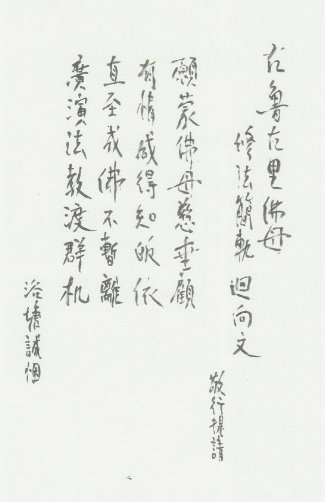 古魯古里佛母
修法簡軌 迴向文
敬行請
願蒙佛母慈垂顧
有情咸得知皈依
直至成佛不暫離
廣演法教渡群机
浴誠